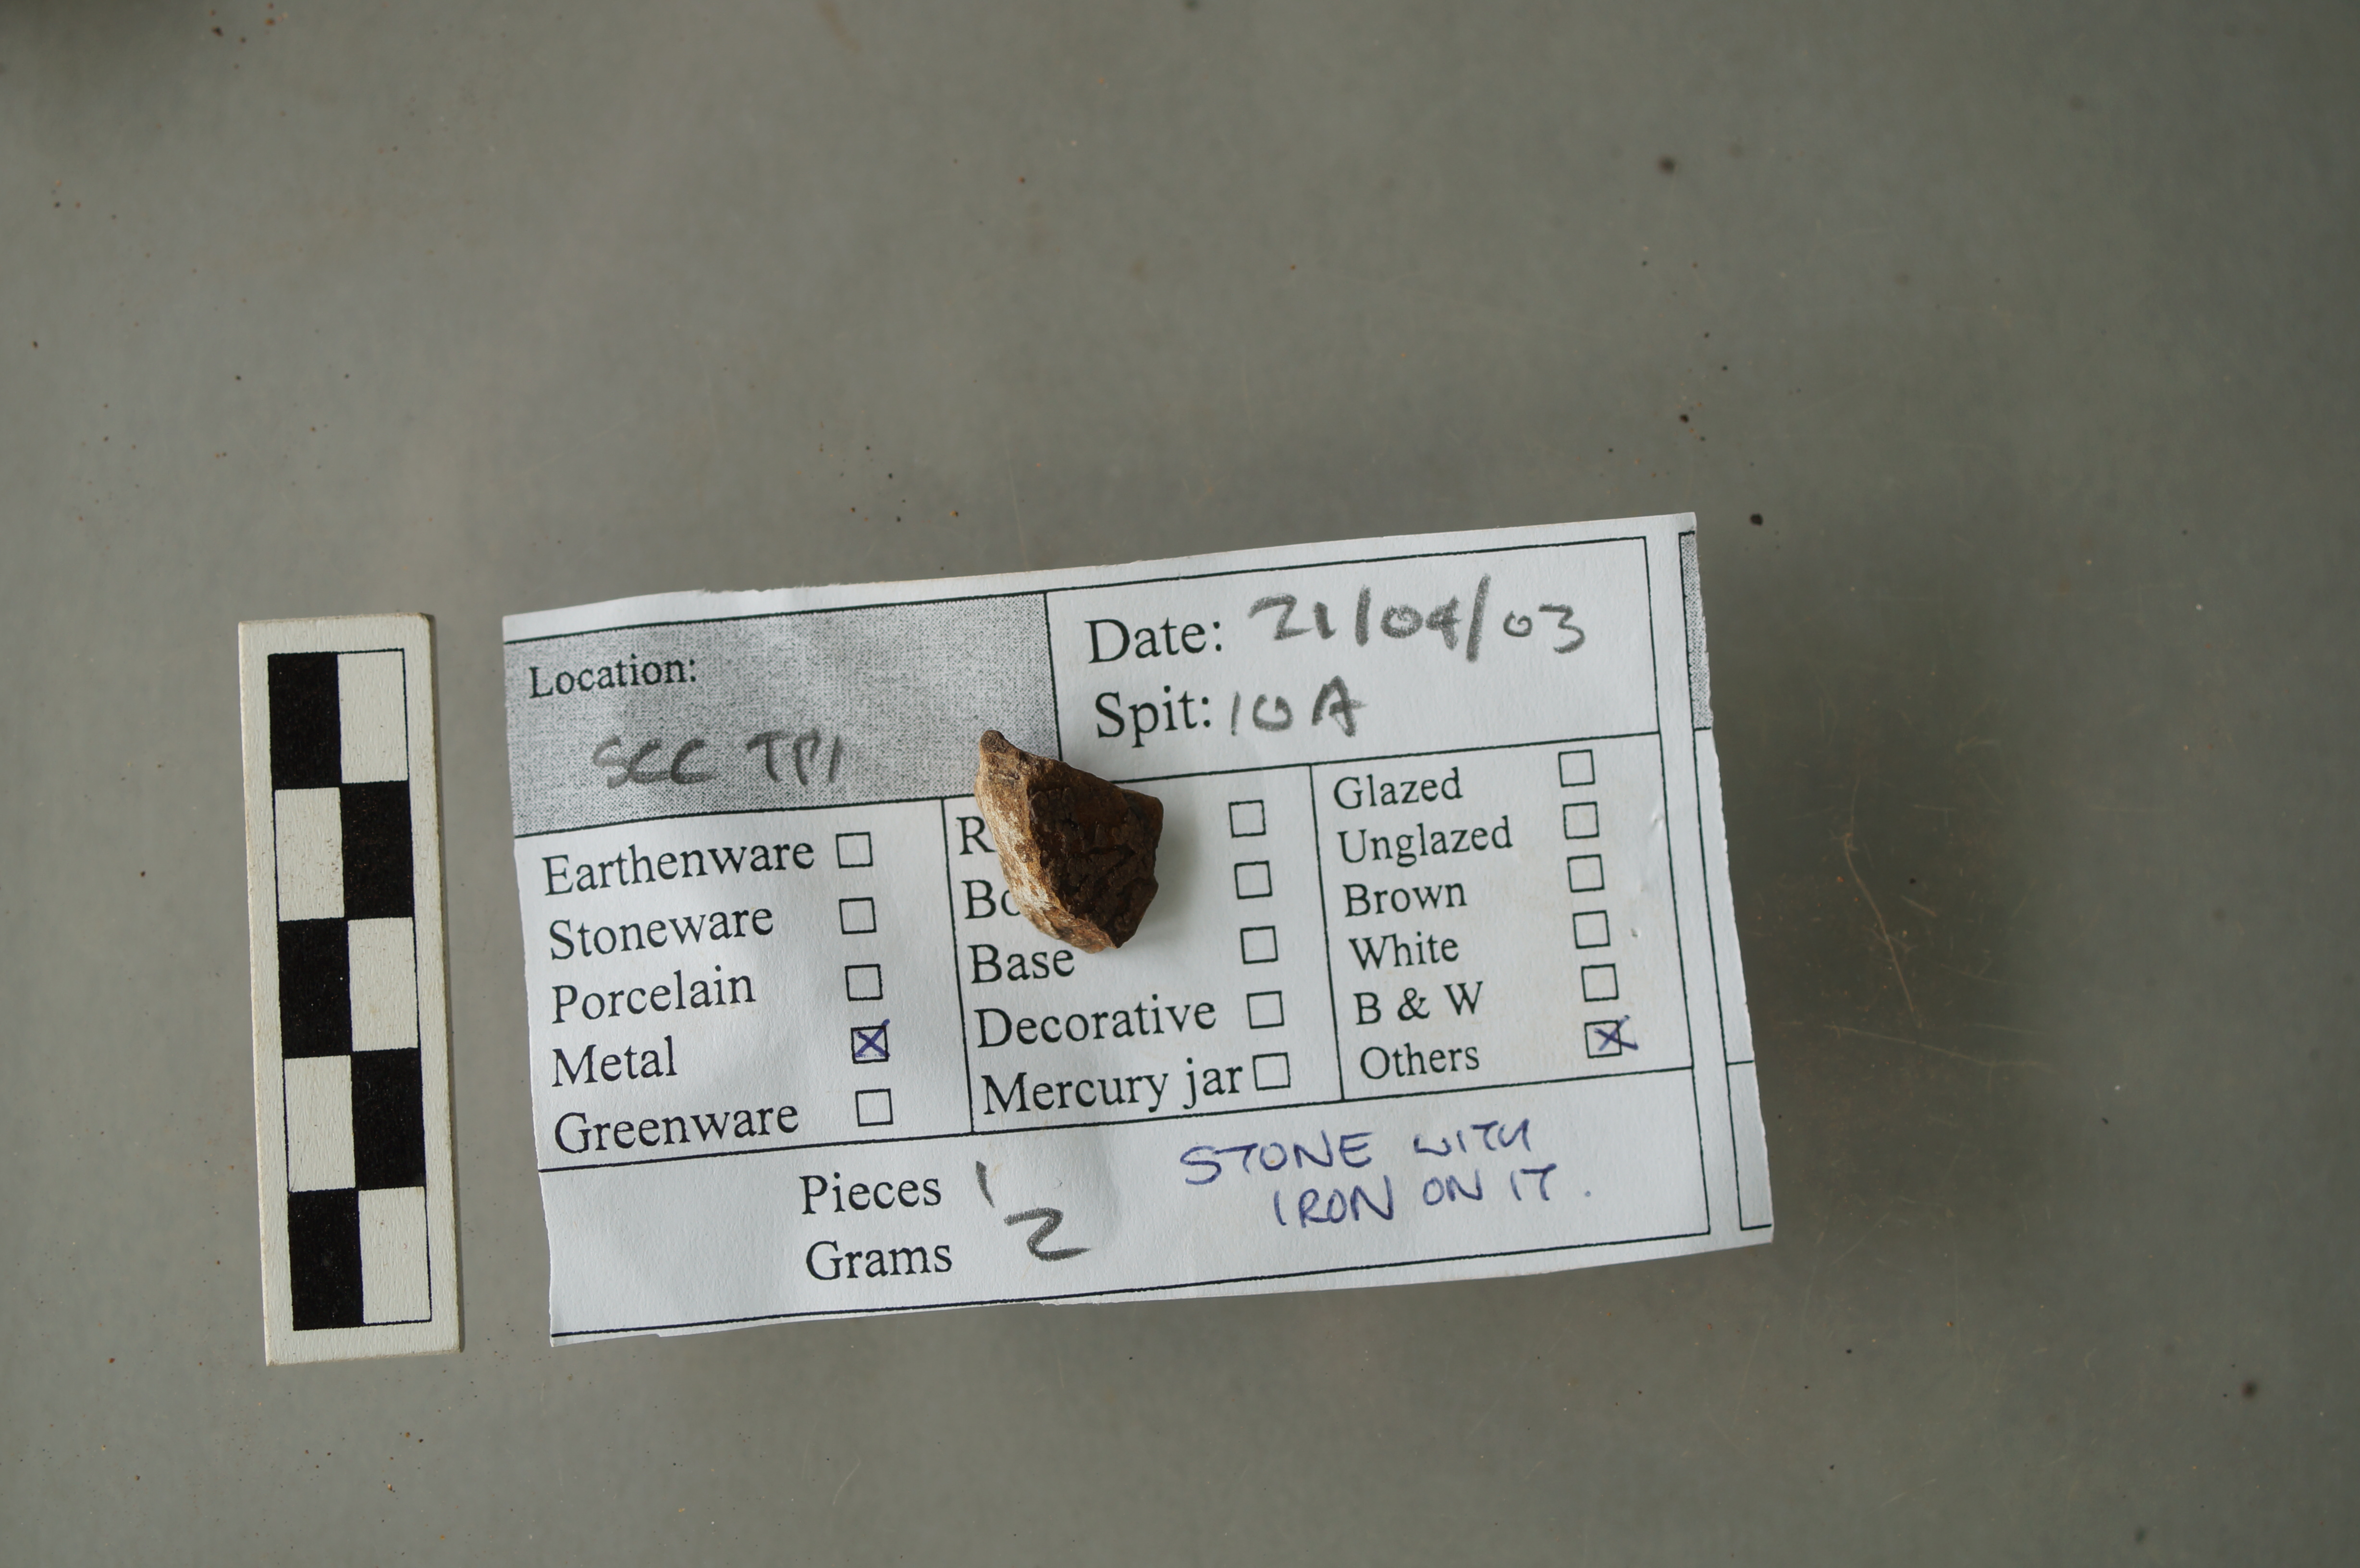 Location:
SCC TP1
Date: 21/04/03
Spit: 10 A
Earthenware
Stoneware
Porcelain
Metal
Greenware
Base
Decorative
Mercury jar
Glazed
Unglazed
Brown
White
B & W
Others
Pieces 1
Grams 2
STONE WITH
IRON ON IT.